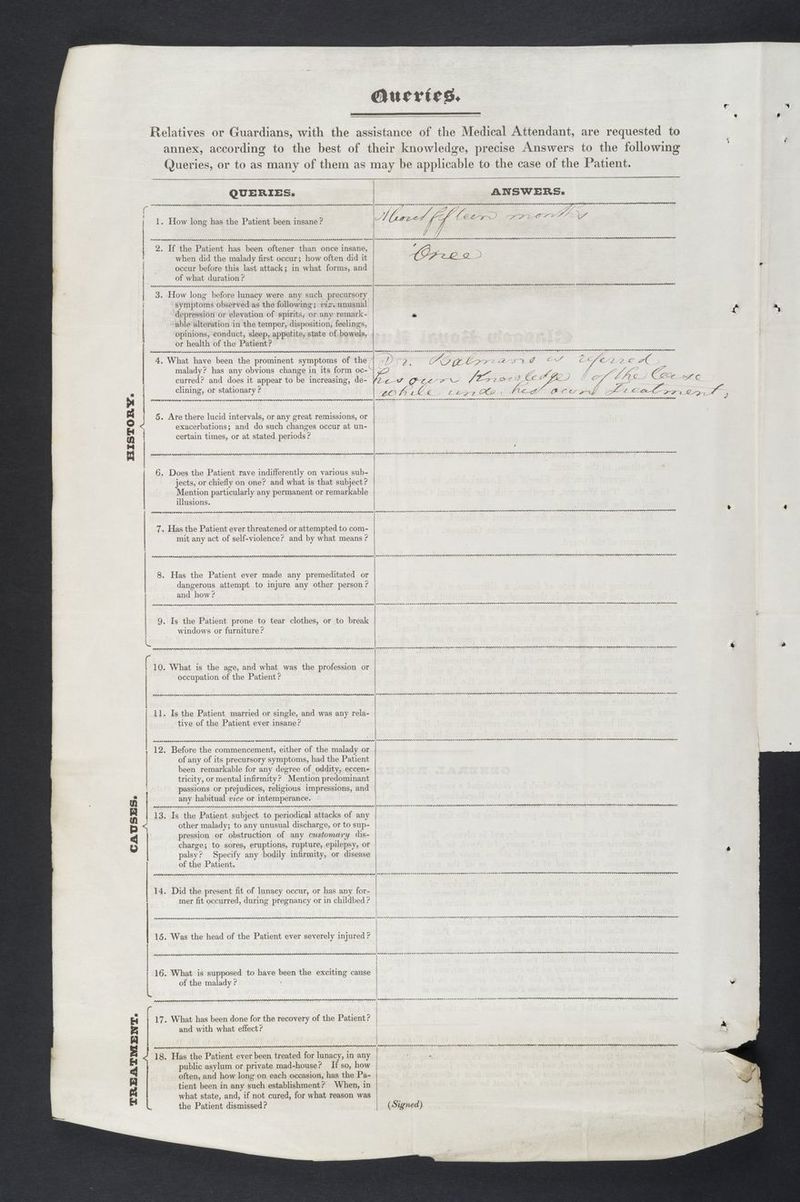 Queries.
Relatives or Guardians, with the assistance of the Medical Attendant, are requested to
annex, according to the best of their knowledge, precise Answers to the following
Queries, or to as many of them as may be applicable to the case of the Patient.
QUERIES.
ANSWERS.
HISTORY.
1. How long has the Patient been insane?
About fifteen months
2. If the Patient has been oftener than once insane,
when did the malady first occur; how often did it
occur before this last attack; in what forms, and
of what duration?
Once
3. How long before lunacy were any such precursory
symptoms observed as the following; viz. unusual
depression or elevation of spirits, or any remark-
able alteration in the temper, disposition, feelings,
opinions, conduct, sleep, appetite, state of bowels,
or health of the Patient?
4. What have been the prominent symptoms of the
malady? has any obvious change in its form oc-
curred? and does it appear to be increasing, de-
clining, or stationary?
Dr. Balmanno is referred
his own Knowledge of the Case
while under his own Treatment,
5. Are there lucid intervals, or any great remissions, or
exacerbations; and do such changes occur at un-
certain times, or at stated periods?
6. Does the Patient rave indifferently on various sub-
jects, or chiefly on one? and what is that subject?
Mention particularly any permanent or remarkable
illusions.
7. Has the Patient ever threatened or attempted to com-
mit any act of self-violence? and by what means?
8. Has the Patient ever made any premeditated or
dangerous attempt to injure any other person?
and how?
9. Is the Patient prone to tear clothes, or to break
windows or furniture?
CAUSES.
10. What is the age, and what was the profession or
occupation of the Patient?
11. Is the Patient married or single, and was any rela-
tive of the Patient ever insane?
12. Before the commencement, either of the malady or
of any of its precursory symptoms, had the Patient
been remarkable for any degree of oddity, eccen-
tricity, or mental infirmity? Mention predominant
passions or prejudices, religious impressions, and
any habitual vice or intemperance.
13. Is the Patient subject to periodical attacks of any
other malady; to any unusual discharge, or to sup-
pression or obstruction of any customary dis-
charge; to sores, eruptions, rupture, epilepsy, or
palsy? Specify any bodily infirmity, or disease
of the Patient.
14. Did the present fit of lunacy occur, or has any for-
mer fit occurred, during pregnancy or in childbed?
15. Was the head of the Patient ever severely injured?
16. What is supposed to have been the exciting cause
of the malady?
TREATMENT.
17. What has been done for the recovery of the Patient?
and with what effect?
18. Has the Patient ever been treated for lunacy, in any
public asylum or private mad-house? If so, how
often, and how long on each occasion, has the Pa-
tient been in any such establishment? When, in
what state, and, if not cured, for what reason was
the Patient dismissed?
(Signed)